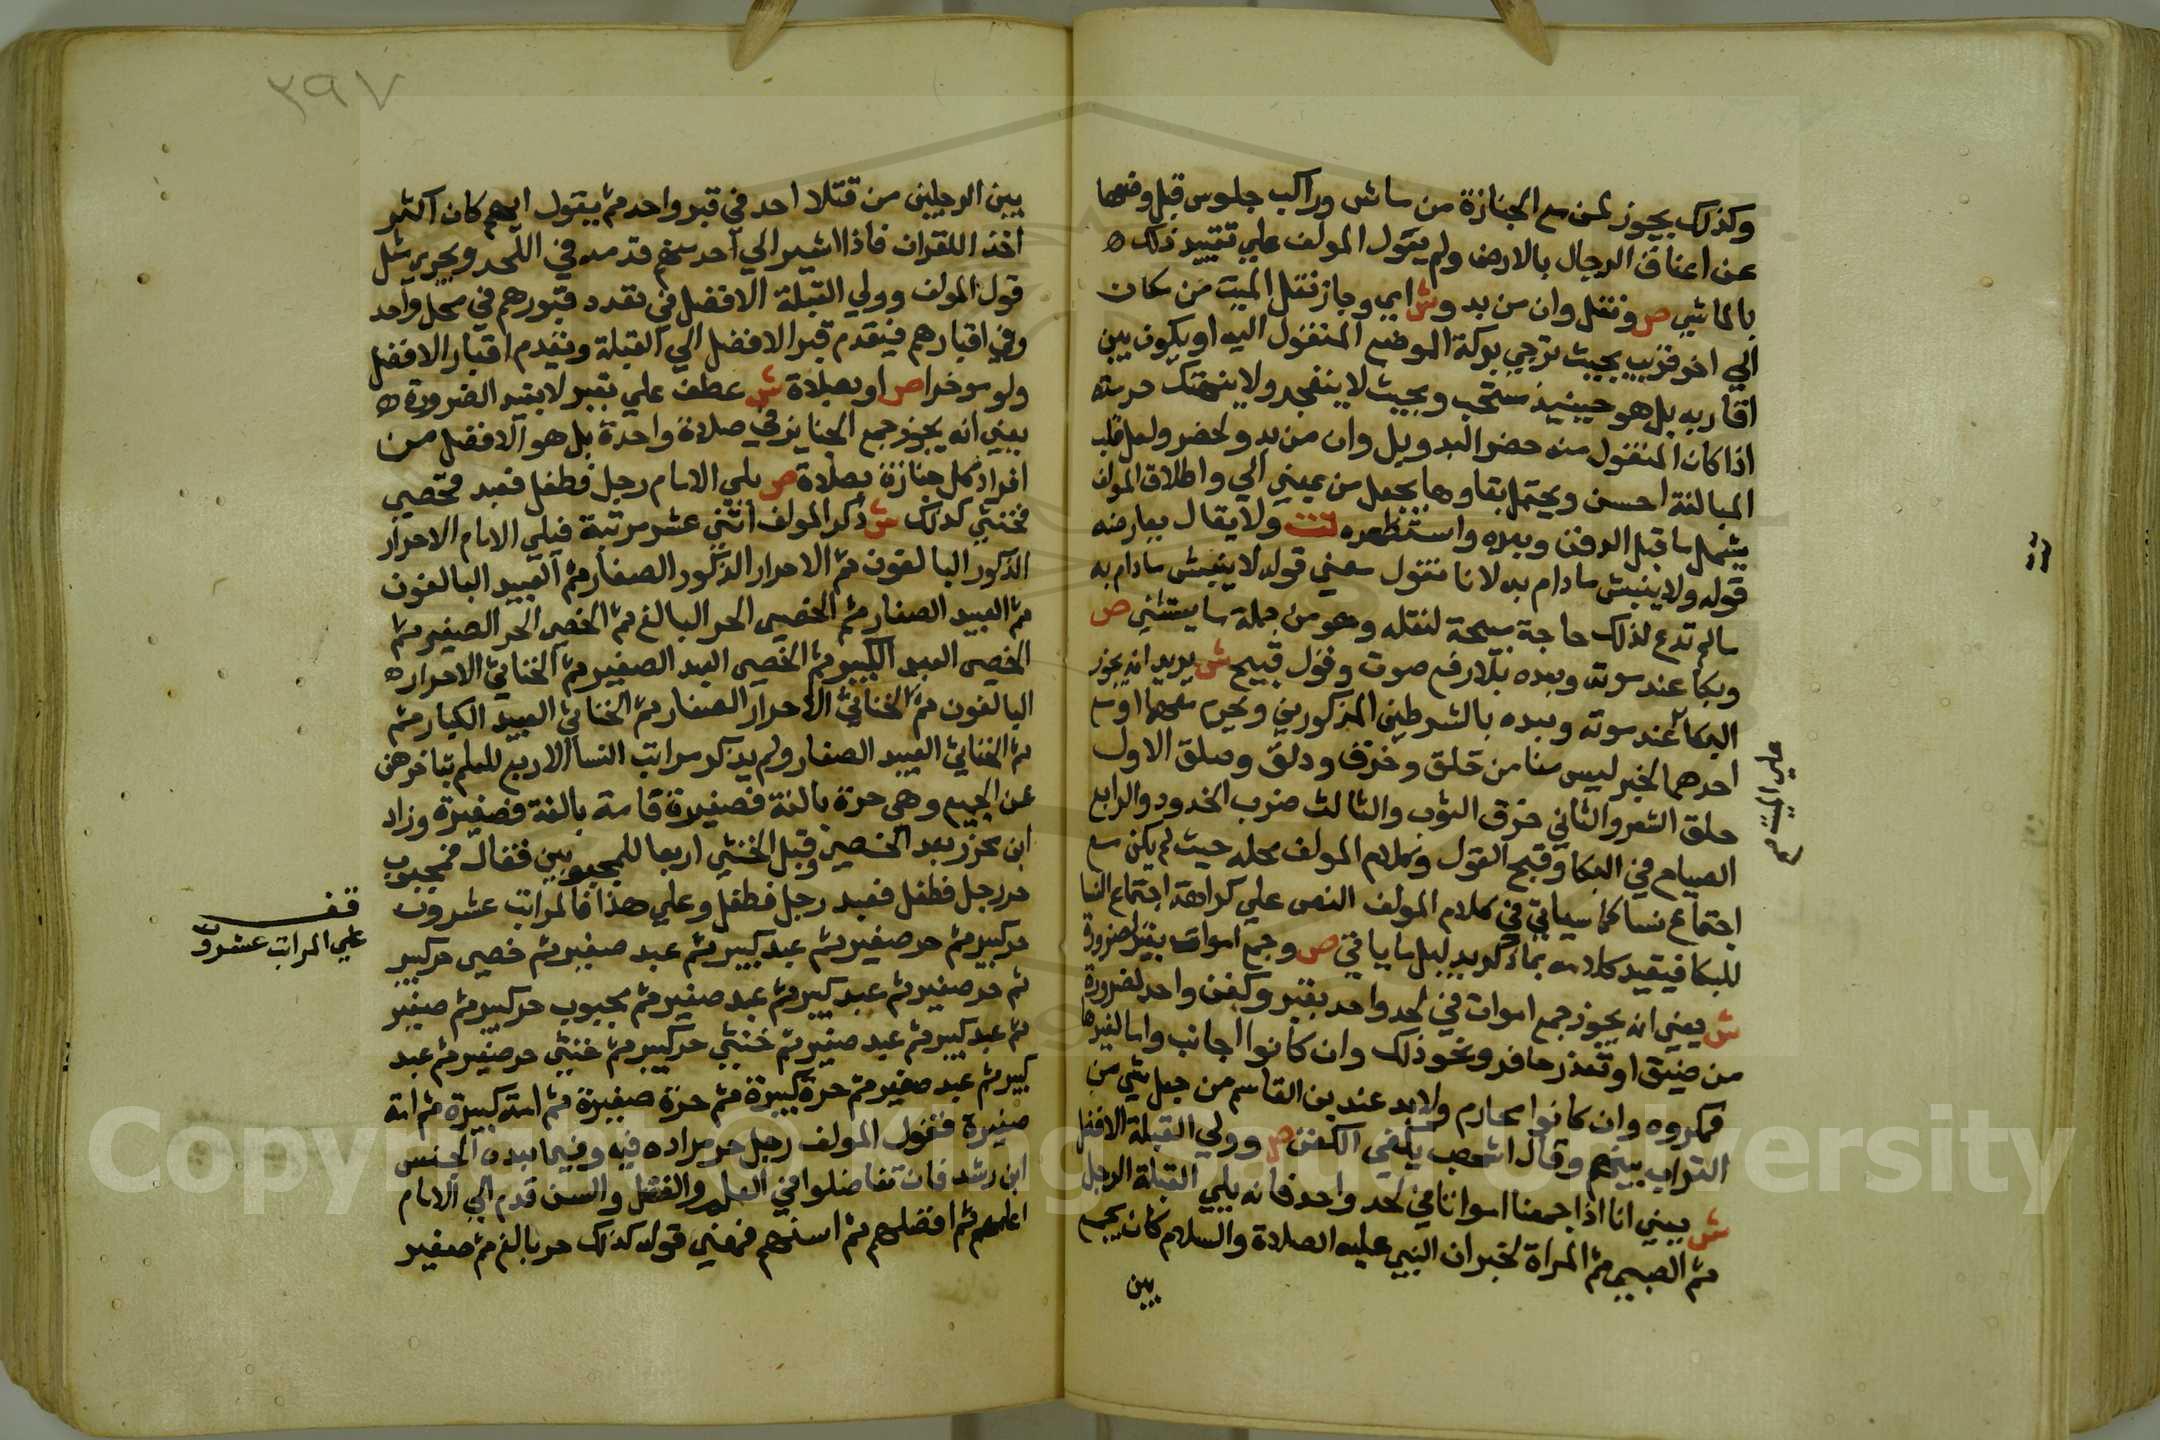 وكذلك يجوز لمن مع الجنازة من ماش وراكب جلوس قبل وضعها
عن اعناق الرجال بالارض ولم يعول المولف علي تقييد ذلك ه
بالماشي ص ونقل وان من بدو ش اي وجاز نقل الميت من مكان
الي اخر قريب بحيث ترجي بركة الموضع المنقول اليه او يكون بين
اقاربه بل هو حينيذ مستحب وبحيث لا ينفجر ولا ينهتك حرمته
اذا كان المنقول منه حضر البدو بل وان من بدو لحضر ولعل قلب
المبالغة احسن ويحتمل بقاوها بجعل من بمعني الي واطلاق المولف
يشمل ما قبل الدفن وبعده واستظهره تت ولا يقال يعارضه
قوله ولا ينبش مادام به لانا نقول معني قوله لا ينبش مادام به
ما لم تدع لذلك حاجة مبيحة لنقله وهو من جملة ما يستثني ص
وبكا عند موته وبعده بلا رفع صوت وقول قبيح ش يريد انه يجوز
البكا عند موته وبعده بالشرطين المذكورين ويحرم معهما او مع
احدهما لخبر ليس منا من حلق وخرق ودلق وسلق الاول
حلق الشعر والثاني خرق الثوب والثالث ضرب الخدود والرابع
الصياح في البكا وقبح القول وكلام المولف محله حيث لم يكن مع
اجتماع نسا كما سياتي في كلام المولف النص علي كراهة اجتماع النسا
للبكا فيقيد كلامه بما ذكر بدليل ما ياتي ص وجمع اموات بقبر لضرورة
ش يعني انه يجوز جمع اموات في لحد واحد بقبر وكفن واحد لضرورة
من ضيق او تعذر حافر ونحو ذلك وان كانوا اجانب واما لغيرها
فمكروه وان كانوا محارم ولا بد عند بن القاسم من جعل شي من
التراب بينهم وقال اشهب يكفي الكفن ص وولي القبلة الافضل
ش يعني انا اذا جمعنا امواتا في لحد واحد فانه يلي القبلة الرجل
ثم الصبي ثم المراة لخبر ان النبي عليه الصلاة والسلام كان يجمع
بين
علي الميت
٣٩٧
بين الرجلين من قتلا احد في قبر واحد ثم يقول ايهم كان اكثر
اخذا للقران فاذا اشير الي احد منهم قدمه في اللحد ويجري مثل
قول المولف وولي القبلة الافضل في تعدد قبورهم في محل واحد
وفي اقبارهم فيتقدم قبر الافضل الي القبلة وتقدم اقبار الافضل
ولو موخرا ص او بصلاة ش عطف علي بقبر لا بقيد الضرورة ه
يعني انه يجوز جمع الجنايز في صلاة واحدة بل هو الافضل من
افراد كل جنازة بصلاة ص يلي الامام رجل فطفل فعبد فخصي
فخنثي كذلك ش ذكر المولف اثني عشر مرتبة فيلي الامام الاحرار
الذكور البالغون ثم الاحرار الذكور الصغار ثم العبيد البالغون
ثم العبيد الصغار ثم الخصي الحر البالغ ثم الخصي الحر الصغير ثم
الخصي العبد الكبير ثم الخصي العبد الصغير ثم الخناثي الاحرار ه
البالغون ثم الخناثي الاحرار الصغار ثم الخناثي العبيد الكبار ثم
ثم الخناثي العبيد الصغار ولم يذكر مراتب النسا الاربع للعلم بتاخرهن
عن الجميع وهي حرة بالغة فصغيرة فامة بالغة فصغيرة وزاد
ابن محرز بعد الخصي وقبل الخنثي اربعا للمجبوبين فقال فمجبوب
حر رجل فطفل فعبد رجل فطفل وعلي هذا فالمراتب عشرون
حر كبير ثم حر صغير ثم عبد كبير ثم عبد صغير ثم خصي حر كبير
ثم حر صغير ثم عبد كبير ثم عبد صغير ثم مجبوب حر كبير ثم صغير
ثم عبد كبير ثم عبد صغير ثم خنثي حر كبير ثم خنثي حر صغير ثم عبد
كبير ثم عبد صغير ثم حرة كبيرة ثم حرة صغيرة ثم امة كبيرة ثم امة
صغيرة فقول المولف رجل حر مراده فيه وفيما بعده الجنس
ابن رشد فان تفاضلوا في العلم والفضل والسن قدم الي الامام
اعلمهم ثم افضلهم ثم اسنهم فمعني قوله كذلك حر بالغ ثم صغير
قف
علي المراتب عشرون
Copyright © King Saud University